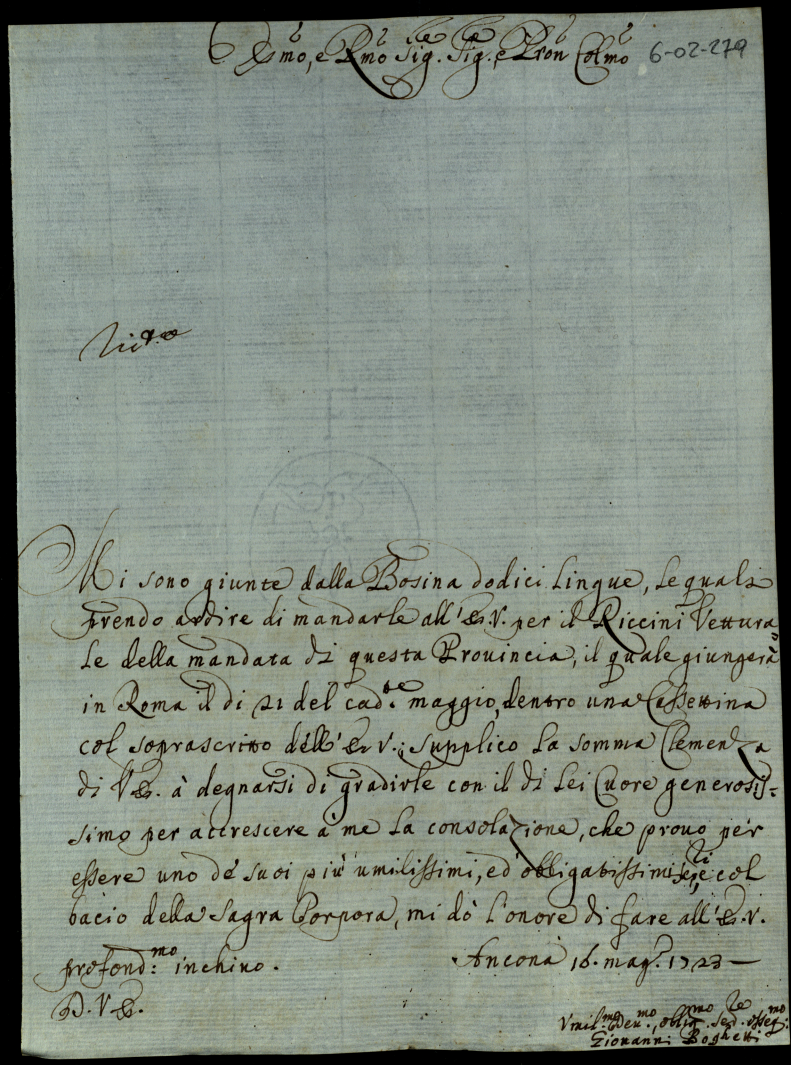 Em̃o, e Rm̃o Sig.re Sig.re, e Pron Colm̃o 6-02-279
Mi sono giunte dalla Bosina dodici Lingue, le quali
prendo ardire di mandarle all'E.V. per il Riccini Vettura=
le della mandata di questa Prouincia, il quale giungerà
in Roma il di 21 del cad.te maggio, dentro una Cassettina
col soprascritto dell'E.V.; supplico la somma Clemenza
di V.E. à degnarsi di gradirle con il di Lei Cuore generosis=
simo per accrescere à me la consolazione, che prouo per
essere uno de' suoi più umilissimi, ed obligatissimi ser.ri, e col
bacio della Sagra Porpora, mi dò l'onore di fare all'E.V.
profond.mo inchino. Ancona 16. mag.o 1723
D. V. E.
Vmil.mo Deu.mo, oblig.mo Ser.re osseq.mo
Giouanni Boghetti